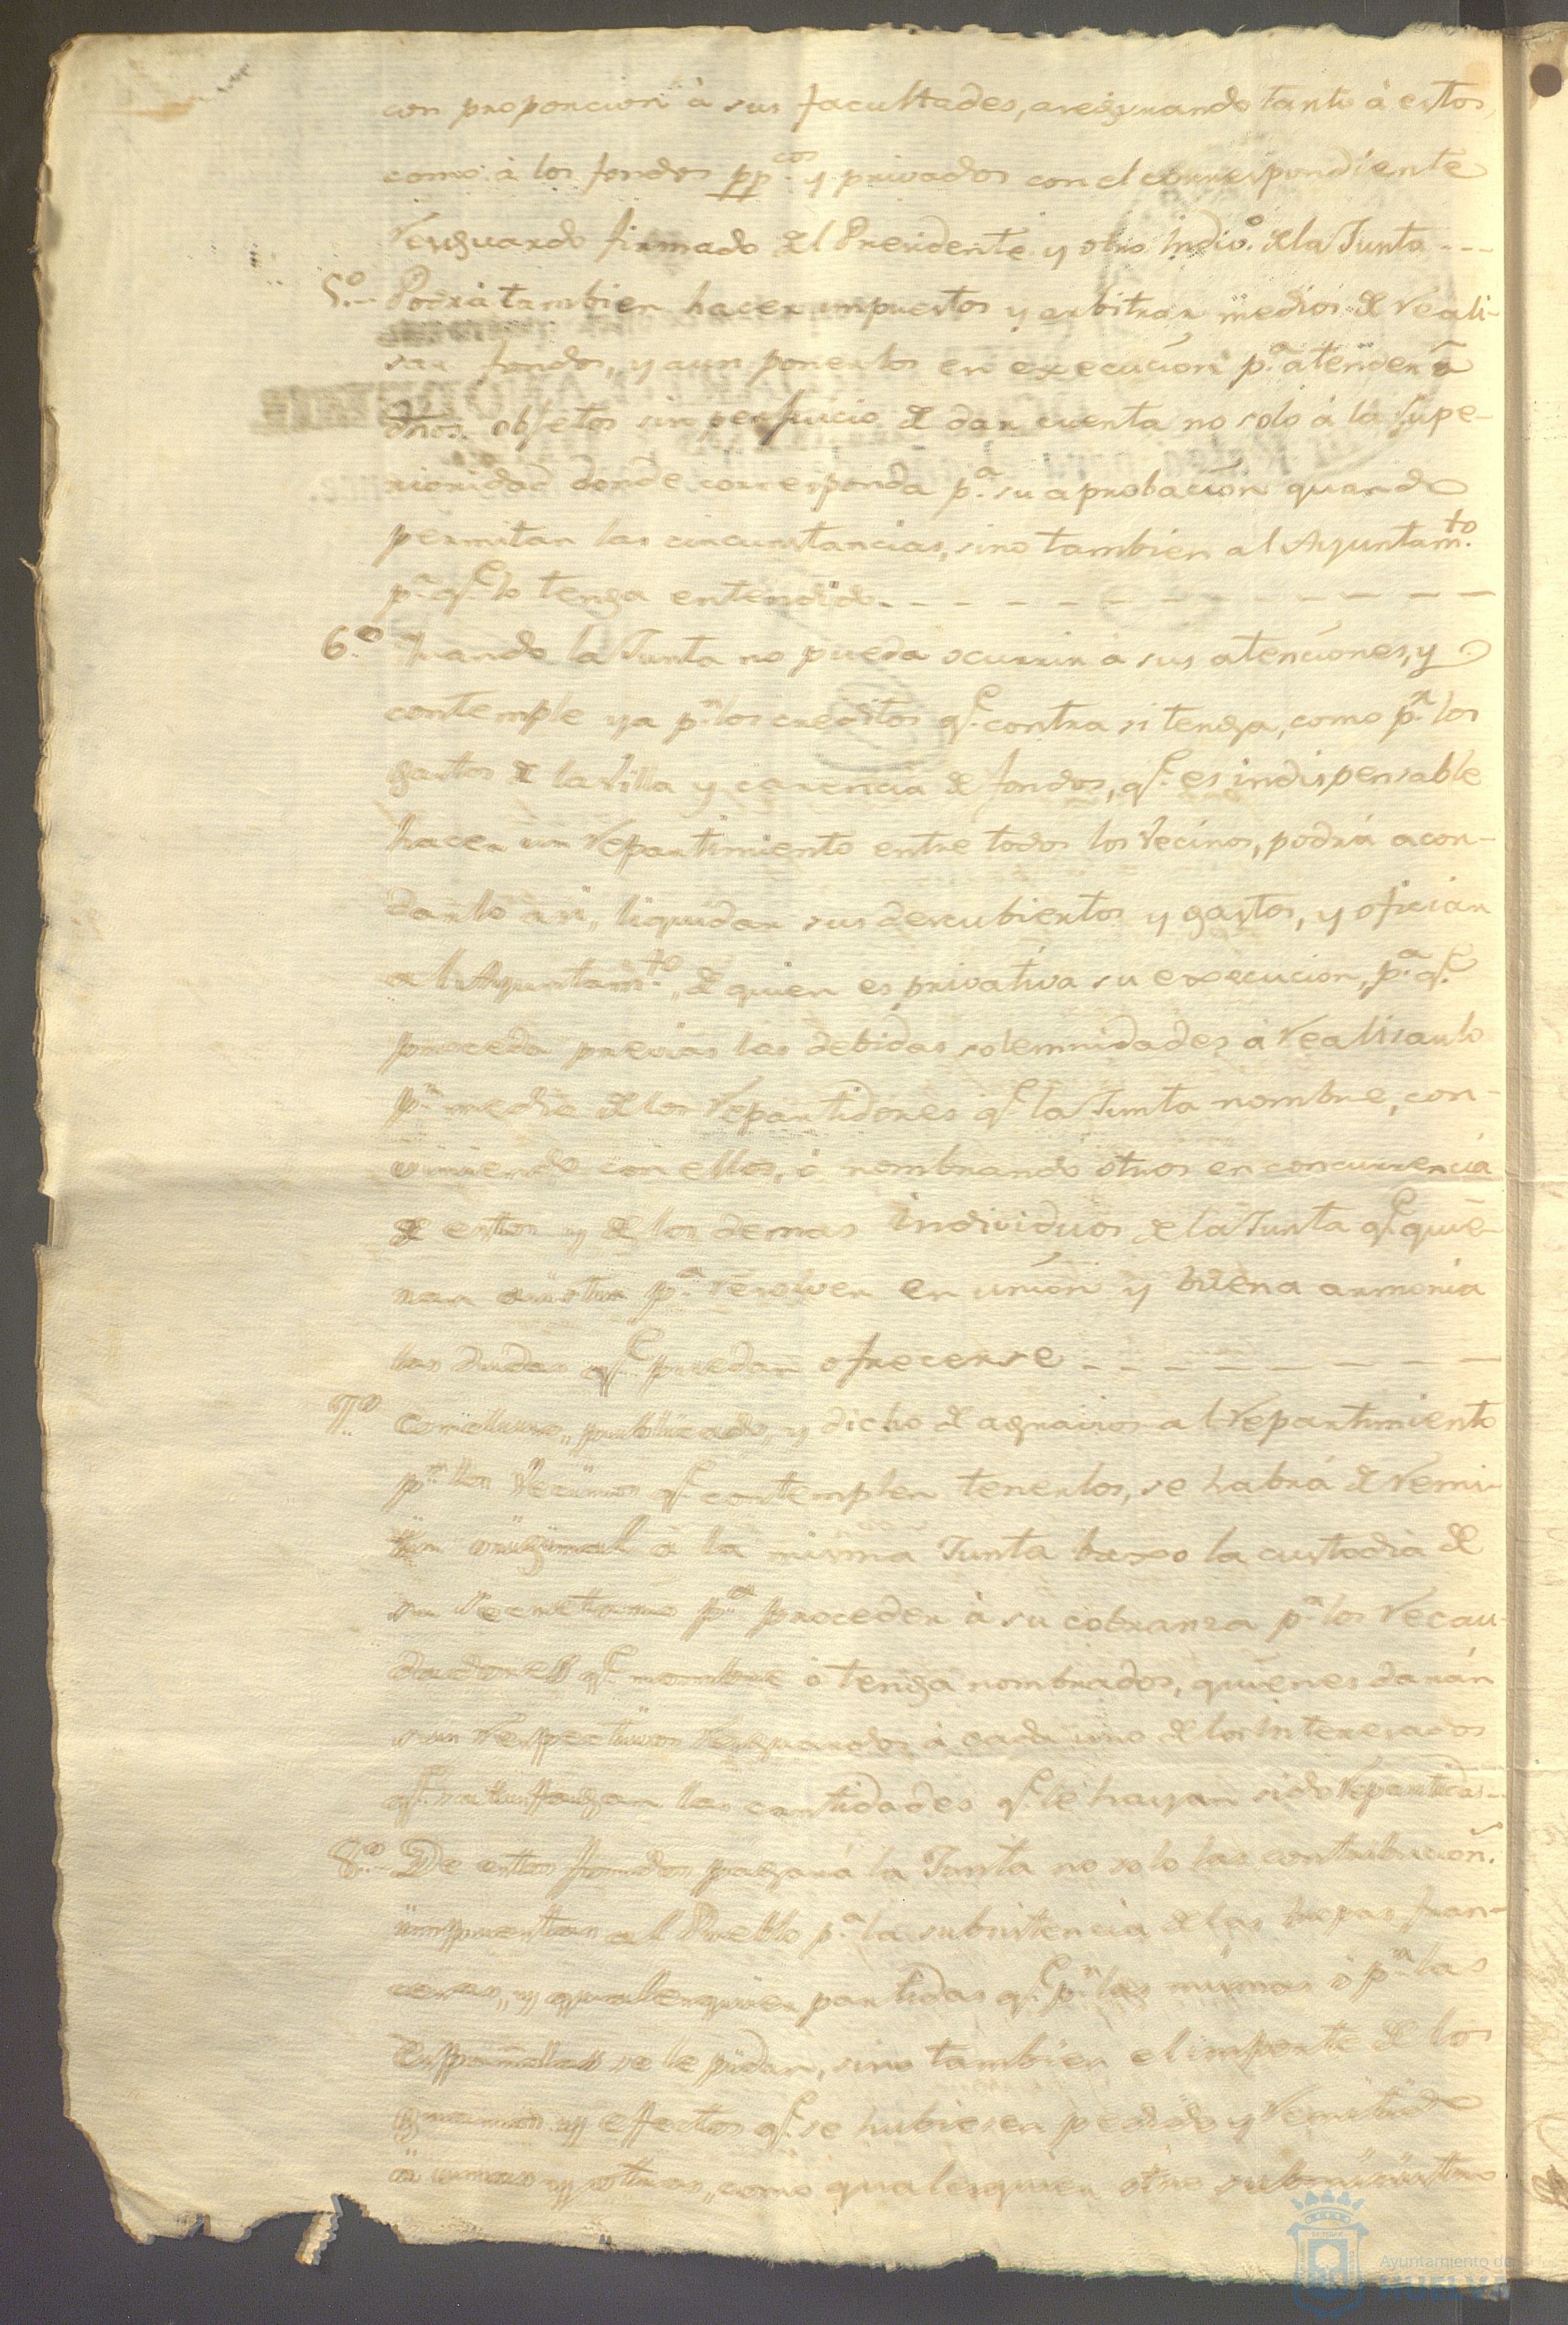 con proporcion à sus facultades, asegurando tanto à estos,
como à los fondos pp.cos y privados con el correspondiente
resguardo firmado del Presidente y otro Indiv.o de la Junta ---
5.o-- Podrà tambien hacer impuestos y arbitrar medios de reali-
sar fondos, y aun ponerlos en execucion p.a atender à
dhos. objetos sin perjuicio de dar cuenta no solo à la Supe-
rioridad donde corresponda p.a su aprobacion quando
permitan las circunstancias, sino tambien al Ayuntam.to
p.a q.e lo tenga entendido. - - - - - - - - - - - -
6.o Quando la Junta no pueda ocurrir à sus atenciones, y
contemple ya p.a los creditos q.e contra si tenga, como p.a los
gastos de la Villa y carencia de fondos, q.e es indispensable
hacer un repartimiento entre todos los Vecinos, podrà acor-
darlo asi, liquidar sus descubiertos y gastos, y oficiar
al Ayuntam.to, de quien es privativa su execucion, p.a q.e
proceda previas las debidas solemnidades à realisarlo
p.r medio de los repartidores q.e la Junta nombre, con-
viniendo con ellos, ò nombrando otros en concurrencia
de estos y de los demas individuos de la Junta q.e quie-
ran asistir p.a resolver en union y buena armonia
las dudas q.e puedan ofrecerse - - - - - - - -
7.o Concluso, publicado, y dicho de agravios al repartimiento
p.r los Vecinos q.e contemplen tenerlos, se habrà de remi-
tir original à la misma Junta baxo la custodia de
su Secretario p.a proceder à su cobranza p.r los recau-
dadores q.e nombre ò tenga nombrados, quienes daràn
sus respectivos resguardos à cada uno de los interesados
q.e satisfagan las cantidades q.e le hayan sido repartidas--
8.o- De estos fondos pagarà la Junta no solo las contribucion.s
impuestas al Pueblo p.a la subsistencia de las tropas fran-
cesas, y qualesquier partidas q.e p.r las mismas ò p.r las
Españolas se le pidan, sino tambien el importe de los
granos y efectos q.e se hubiesen pedido y remitido
à unas y otras, como qualesquier otro subministro
Ayuntamiento de
HUELVA